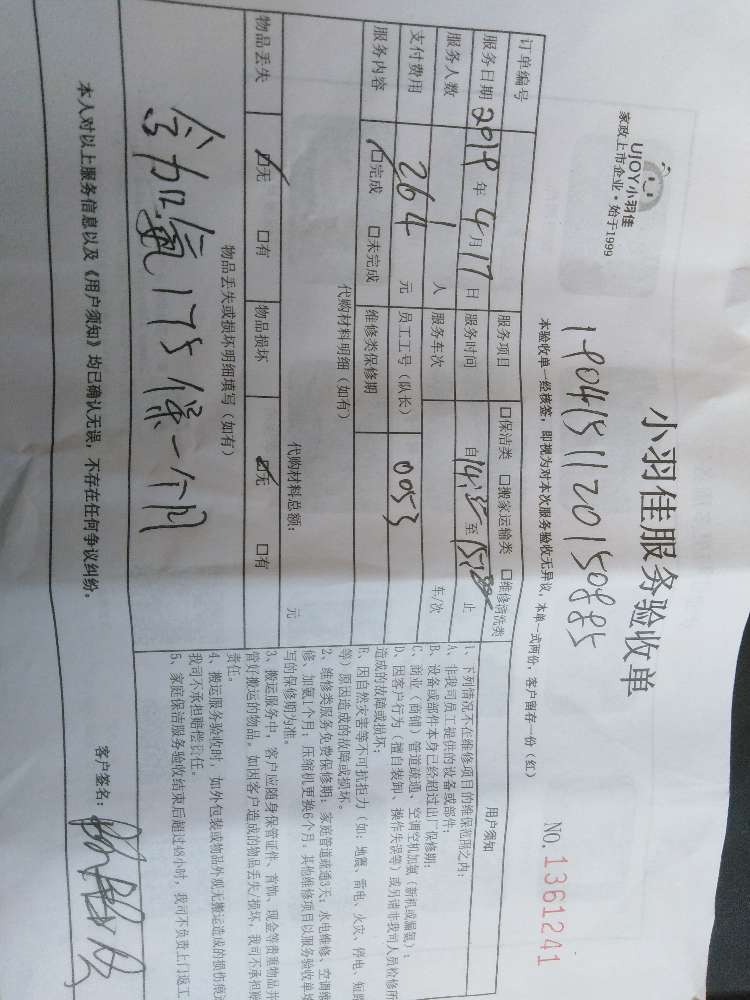 UJOY小羽佳
家政上市企业·始于1999
小羽佳服务验收单
NO.1361241
本验收单一经核签，即视为对本次服务验收无异议，本单一式两份，客户留存一份（红）
订单编号
服务项目 □保洁类 □搬家运输类 □维修清洗类
服务日期 2019年4月17日 服务时间 自 至 止
服务人数 1人 服务车次 车/次
支付费用 264元 员工工号（队长） 0053
服务内容 □完成 □未完成 维修类保修期
代购材料明细（如有）
代购材料总额： 元
物品丢失 □无 □有 物品损坏 □无 □有
物品丢失或损坏明细填写（如有）
加氟 保一个月
用户须知
1、下列情况不在维修项目的维保范围之内：
A、非我司员工提供的设备或部件；
B、设备或部件本身已经超过出厂保修期；
C、商业（商铺）管道疏通、空调空机加氟（新机或漏氟）；
D、因客户行为（擅自装卸、操作失误等）或另请非我司人员检修所
造成的故障或损坏；
E、因自然灾害等不可抗拒力（如：地震、雷电、火灾、停电、短路
等）原因造成的故障或损坏。
2、维修类服务免费保修期：家庭管道疏通3天；水电维修、空调维
修、加氟1个月；压缩机更换6个月，其他维修项目以服务验收单填
写的保修期为准。
3、搬运服务中，客户应随身保管证件、首饰、现金等贵重物品并
管好搬运的物品，如因客户造成的物品丢失/损坏，我司不承担赔
责任。
4、搬运服务验收时，如外包装或物品外观无搬运造成的损伤痕迹
我司不承担赔偿责任。
5、家庭保洁服务验收结束后超过48小时，我司不负责上门返工
本人对以上服务信息以及《用户须知》均已确认无误，不存在任何争议纠纷。
客户签名：